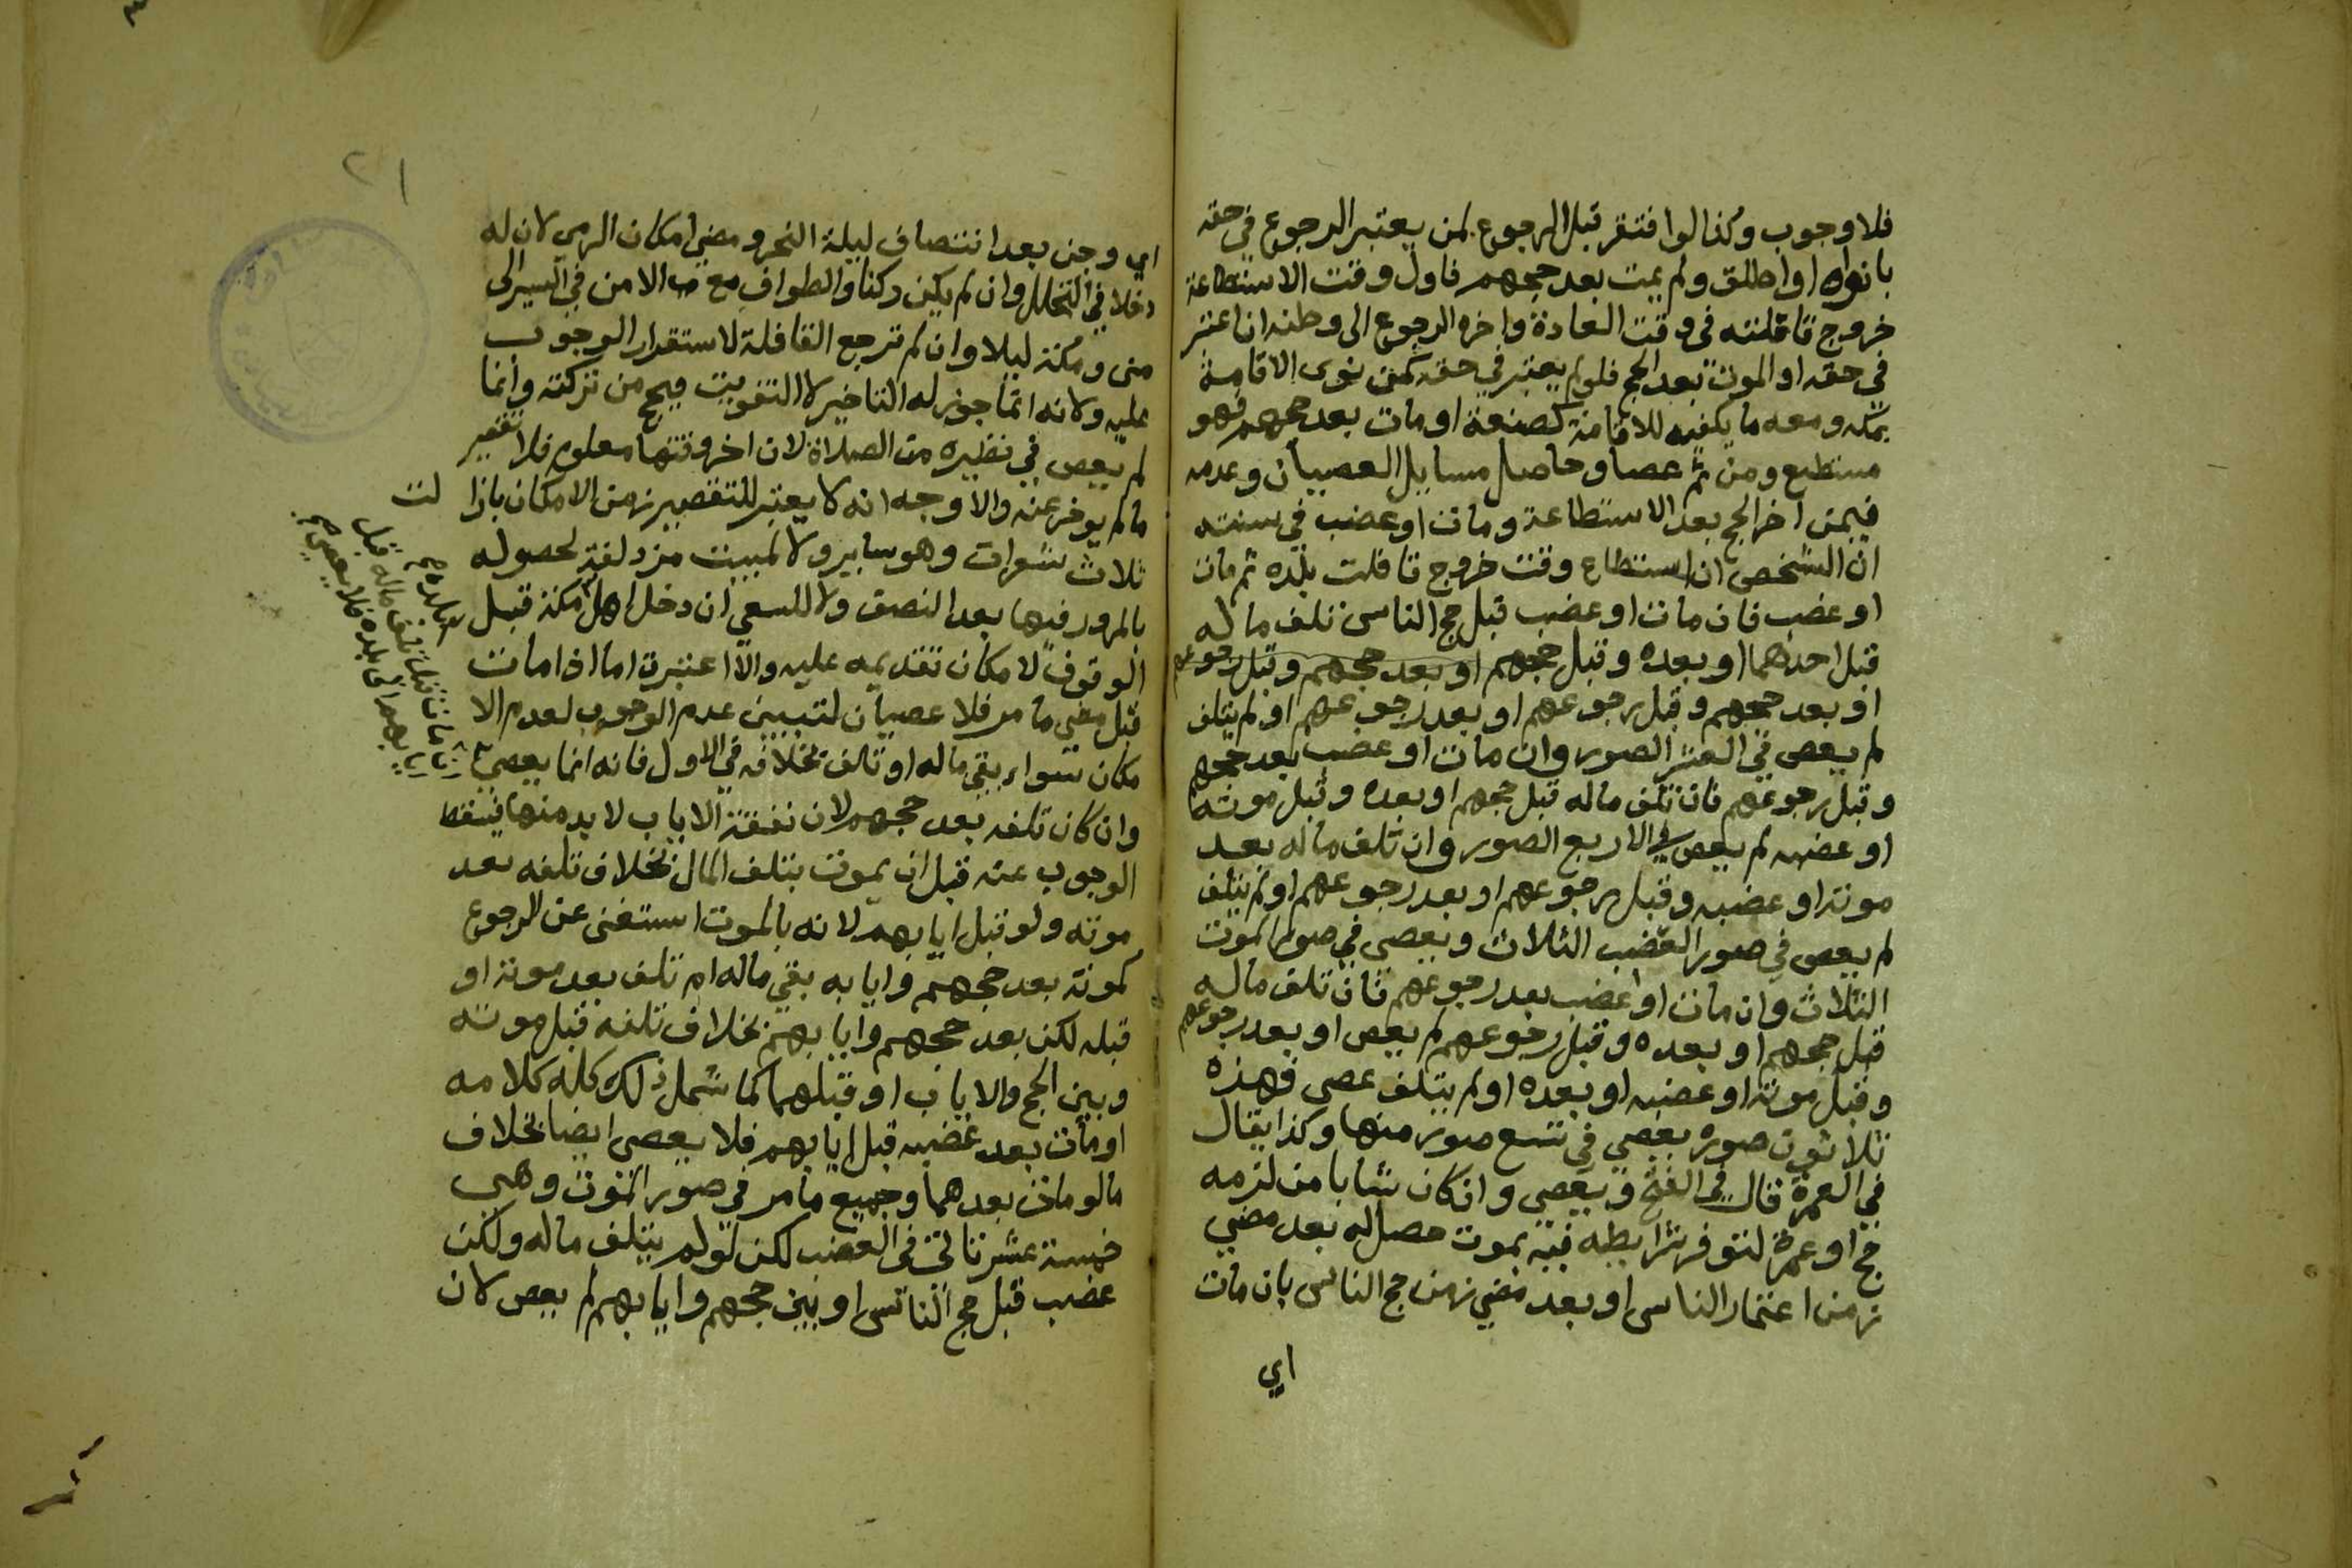 فلا وجوب وكذا لو افتقر قبل الرجوع لمن يعتبر الرجوع في حقه
بان نواه او اطلق ولم يمت بعد حجهم فاول وقت الاستطاعة
خروج قافلته في وقت العادة واخره الرجوع الى وطنه ان اعتبر
في حقه او الموت بعد الحج فلو لم يعتبر في حقه كمن نوى الاقامة
بمكة ومعه ما يكفيه للاقامة كصنعة او مات بعد حجهم فهو
مستطيع ومن ثم عصا وحاصل مسايل العصيان وعدمه
فيمن اخر الحج بعد الاستطاعة ومات او عضب في سنته
ان الشخص ان استطاع وقت خروج قافلت بلده ثم مات
او عضب فان مات او عضب قبل حج الناس تلف ماله
قبل احدهما او بعده وقبل حجهم او بعد حجهم وقبل رجوعهم
او بعد حجهم وقبل رجوعهم او بعد رجوعهم او لم يتلف
لم يعص في العشر الصور وان مات او عضب بعد حجهم
وقبل رجوعهم فان تلف ماله قبل حجهم او بعده وقبل موته
او عضبه لم يعص في الاربع الصور وان تلف ماله بعد
موته او عضبه وقبل رجوعهم او بعد رجوعهم او لم يتلف
لم يعص في صور العضب الثلاث ويعصى في صور الموت
الثلاث وان مات او عضب بعد رجوعهم فان تلف ماله
قبل حجهم او بعده وقبل رجوعهم لم يعص او بعد رجوعهم
وقبل موته او عضبه او بعده او لم يتلف عصى فهذه
ثلاثون صوره يعصي في تسع صور منها وكذا يقال
في العمرة قال في الفتح ويعصي وان كان شابا من لزمه
حج او عمرة لتوفر شرايطه فيه بموت حصل له بعد مضي
زمن اعتمار الناس او بعد مضي زمن حج الناس بان مات
اي
٢١
اي وجن بعد انتصاف ليلة النحر ومضي امكان الرمي لان له
دخلا في التحلل وان لم يكن ركنا والطواف مع الامن في السير الى
منى ومكة ليلا وان لم ترجع القافلة لاستقرار الوجوب
عليه ولانه انما جوز له التاخير لا التفويت فيحج من تركته وانما
لم يعص في نظيره من الصلاة لان اخر وقتها معلوم فلا تقصير
ما لم يوخر عنه والاوجه انه لا يعتبر للتقصير زمن الامكان بازا لت
ثلاث شعرات وهو ساير ولا لمبيت مزدلفة لحصوله
بالمرور فيها بعد النصف ولا للسعي ان دخل اهل مكة قبل
الوقوف لا مكان تقديمه عليه والا اعتبرت اما اذا مات
قبل مضي ما مر فلا عصيان لتبيين عدم الوجوب لعدم الا
مكان سواء بقي ماله او تالف بخلافه في الاول فانه انما يعصي
وان كان تلفه بعد حجهم لان نفقة الاياب لا بد منها فيسقط
الوجوب عنه قبل ان يموت بتلف المال بخلاف تلفه بعد
موته ولو قبل ايابهم لانه بالموت استغنى عن الرجوع
كموته بعد حجهم وايابه بقي ماله ام تلف بعد موته او
قبله لكن بعد حجهم وايابهم بخلاف تلفه قبل موته
وبين الحج والاياب او قبلهما كما شمل ذلك كله كلامه
او مات بعد عضبه قبل ايابهم فلا يعصى ايضا بخلاف
ما لو مات بعدهما وجميع ما مر في صور الموت وهي
خمسة عشر تاتي في العضب لكن لو لم يتلف ماله ولكن
عضب قبل حج الناس او بين حجهم وايابهم لم يعص لان